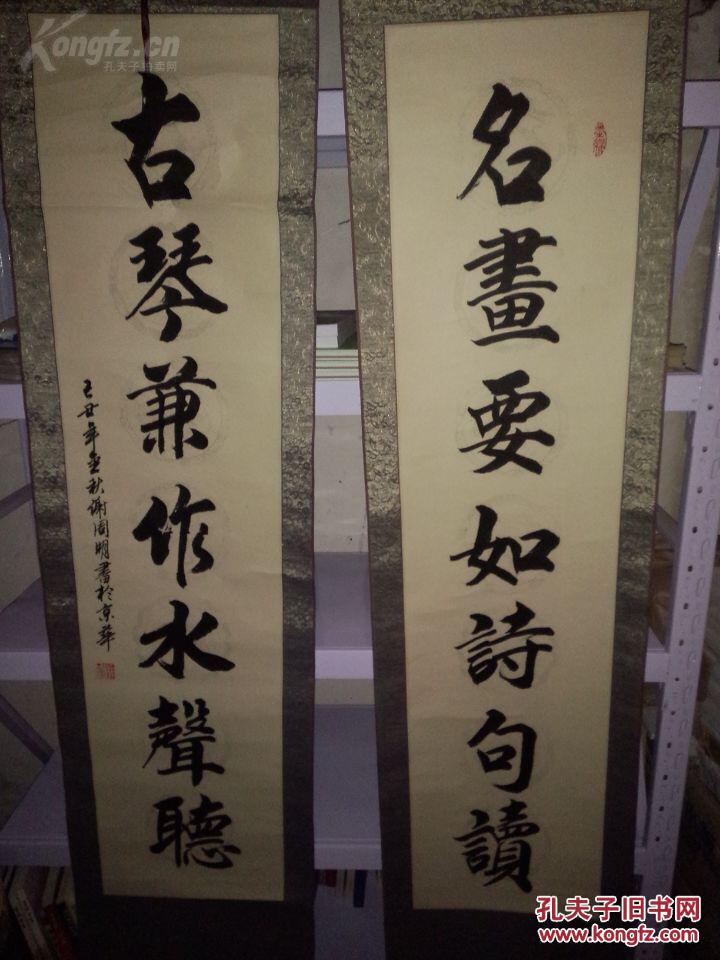 名畫要如詩句讀
古琴兼作水聲聽
己丑年金秋謝周明書於京華
Kongfz.cn
孔夫子拍卖网
孔夫子旧书网
www.kongfz.com